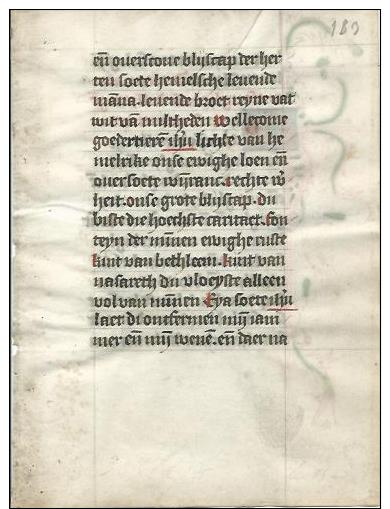 183
en̄ ouerscone blijscap der her
ten soete hemelsche leuende
man̄a. leuende broet reyne vat
wit vā miltheden wellecome
goedertierē ih̄u lichte van he
melrike onse ewighe loen en̄
ouersoete wijranc. rechte w̄
heit. onse grote blijscap. du
biste die hoechste caritaet. fon
teyn der minnen ewighe ruste
kint van bethleem. kint van
nasareth du vloeyste alleen
vol van minnen Eya soete ih̄u
laet di ontfermen mijn iam
mer en̄ mijn wenē. en̄ daer na